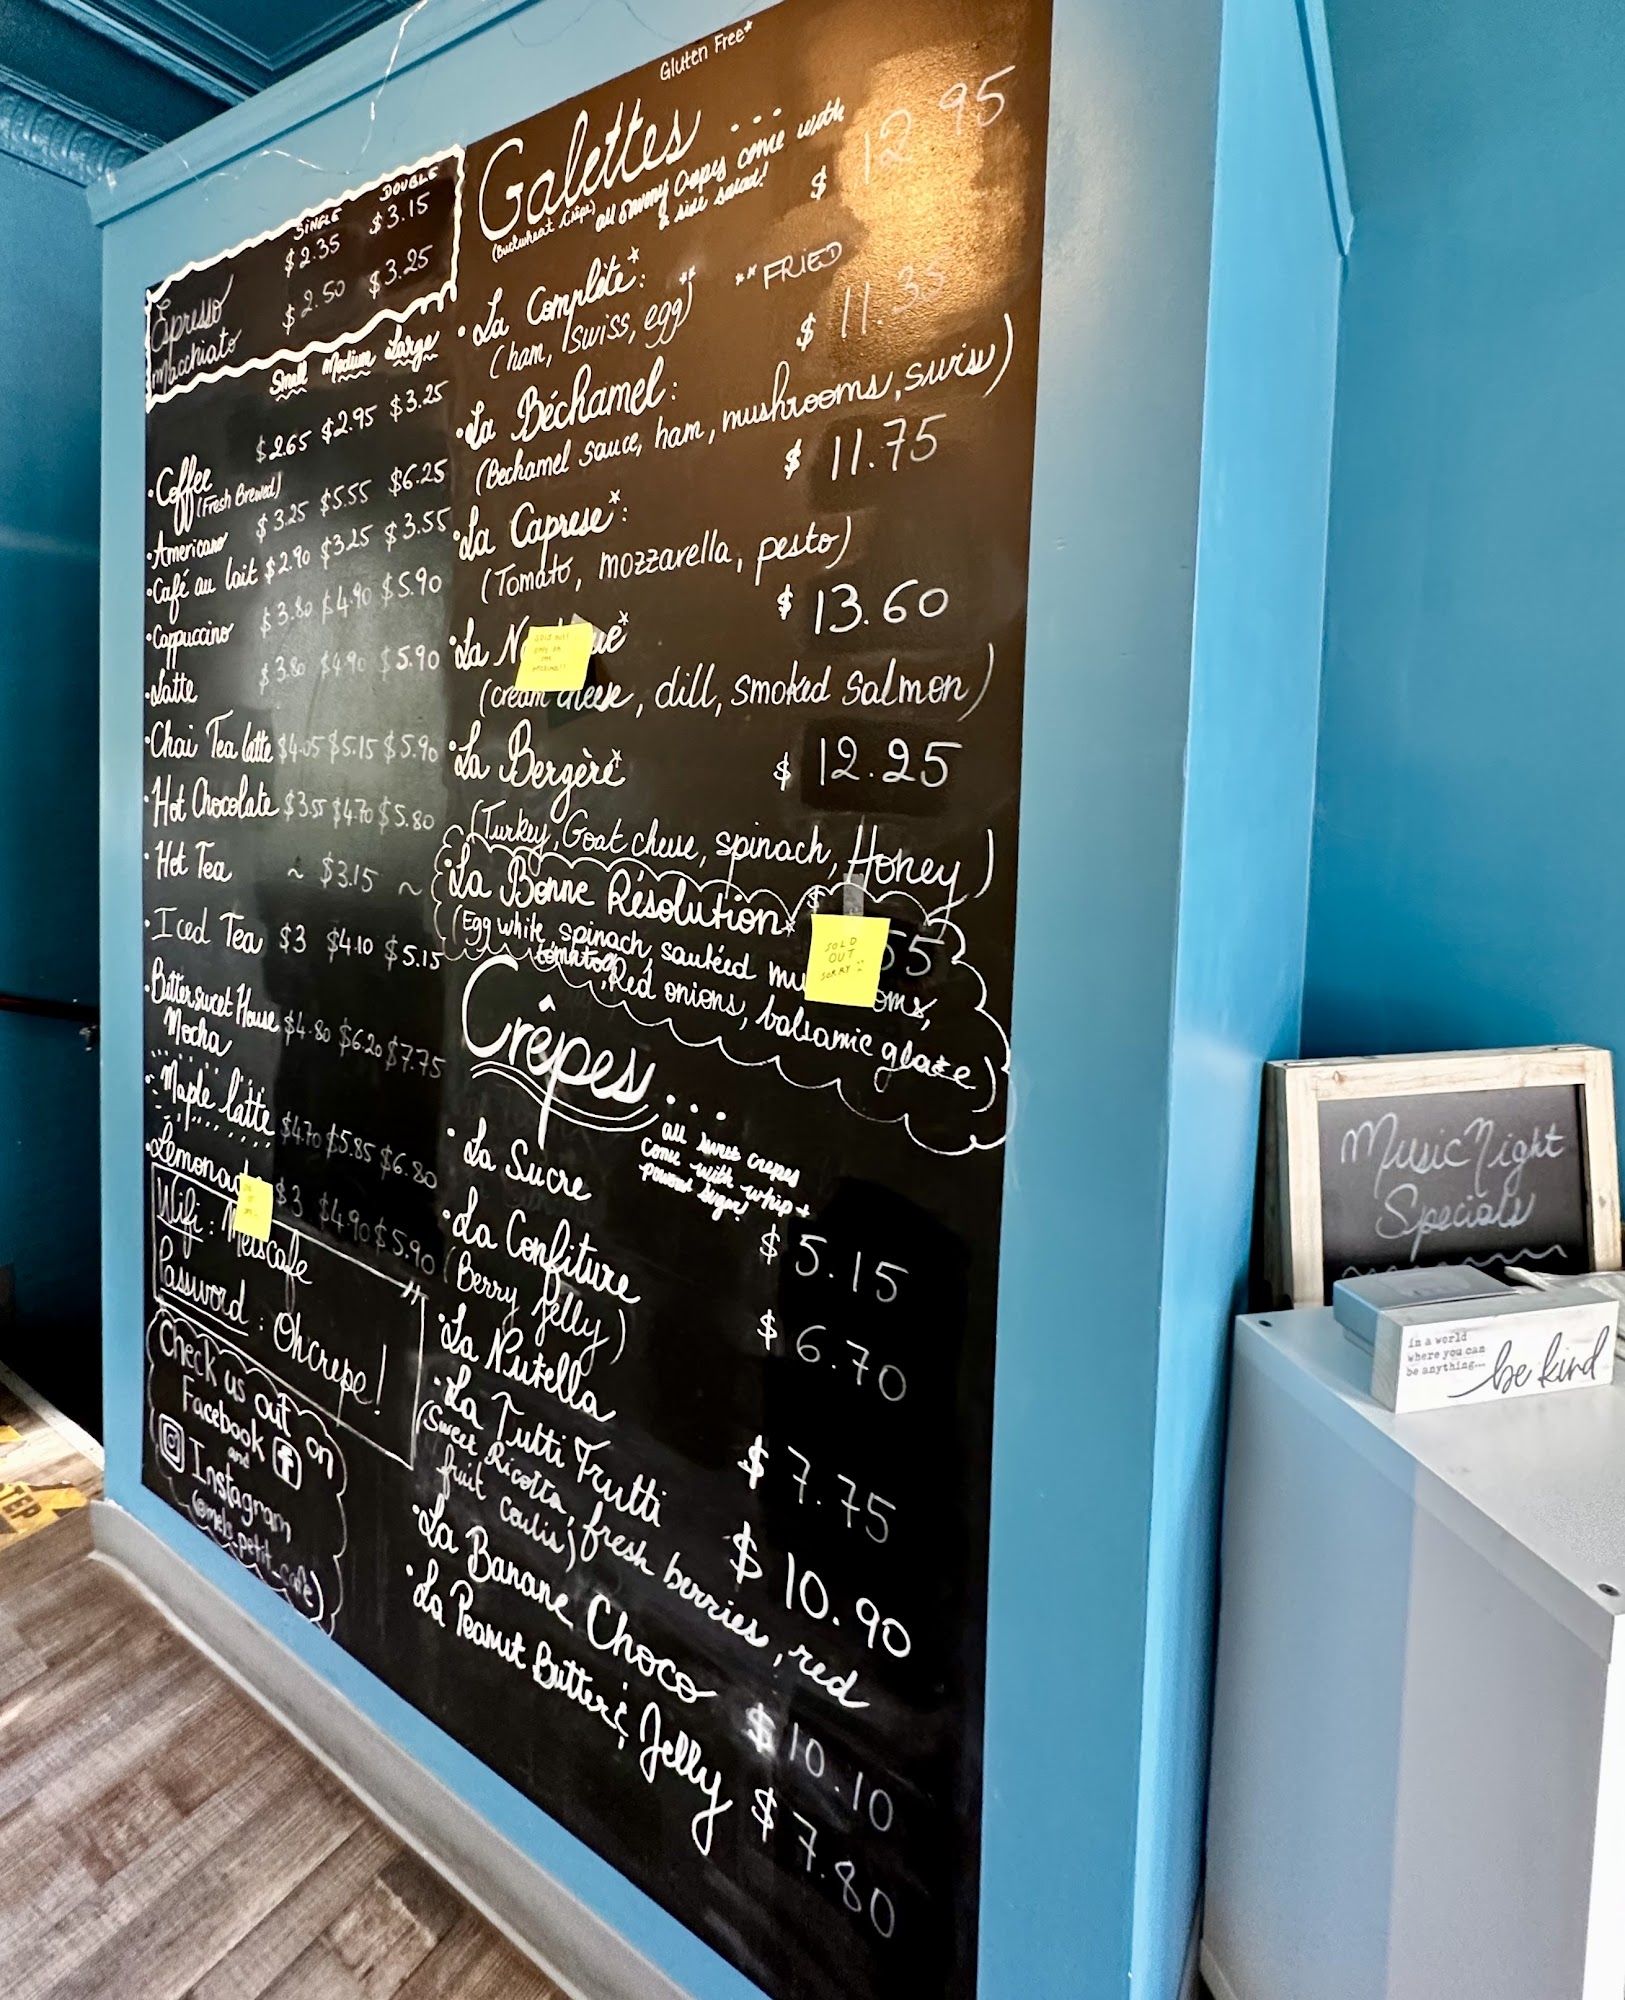 SINGLE DOUBLE
Espresso $2.35 $3.15
Macchiato $2.50 $3.25
Small Medium Large
• Coffee $2.65 $2.95 $3.25
(Fresh Brewed)
• Americano $3.25 $5.55 $6.25
• Café au lait $2.90 $3.25 $3.55
• Cappuccino $3.80 $4.90 $5.90
• Latte $3.80 $4.90 $5.90
• Chai Tea latte $4.05 $5.15 $5.90
• Hot Chocolate $3.55 $4.70 $5.80
• Hot Tea ~ $3.15 ~
• Iced Tea $3 $4.10 $5.15
• Bittersweet House $4.80 $6.20 $7.75
Mocha
• Maple latte $4.70 $5.85 $6.80
• Lemonad $3 $4.90 $5.90
Wifi: Melscafe
Password: Ohcrepe!
Check us out on
Facebook
and
Instagram
(@mels_petit_cafe)
Gluten Free*
Galettes...
(Buckwheat Crêpe)
all Savory Crepes come with
a side salad!
• La Complète*: $12.95
(ham, swiss, egg**) **FRIED
• La Béchamel: $11.35
(Bechamel sauce, ham, mushrooms, swiss)
• La Caprese*: $11.75
(Tomato, mozzarella, pesto)
• La N ue* $13.60
SOLD OUT!
(cream cheese, dill, smoked salmon)
• La Bergère* $12.25
(Turkey, Goat cheese, spinach, Honey)
• La Bonne Résolution* $ 55
SOLD
OUT
SORRY
(Egg white, spinach, sautéed mu oms,
tomatoe, Red onions, balsamic glaze)
Crêpes...
all sweet crepes
come with whip +
powder sugar!
• La Sucre $5.15
• La Confiture $6.70
(Berry Jelly)
• La Nutella $7.75
• La Tutti Frutti $10.90
(Sweet Ricotta, fresh berries, red
fruit coulis)
• La Banane Choco $10.10
• La Peanut Butter & Jelly $7.80
Music Night
Specials
in a world
where you can
be anything...
be kind
EP